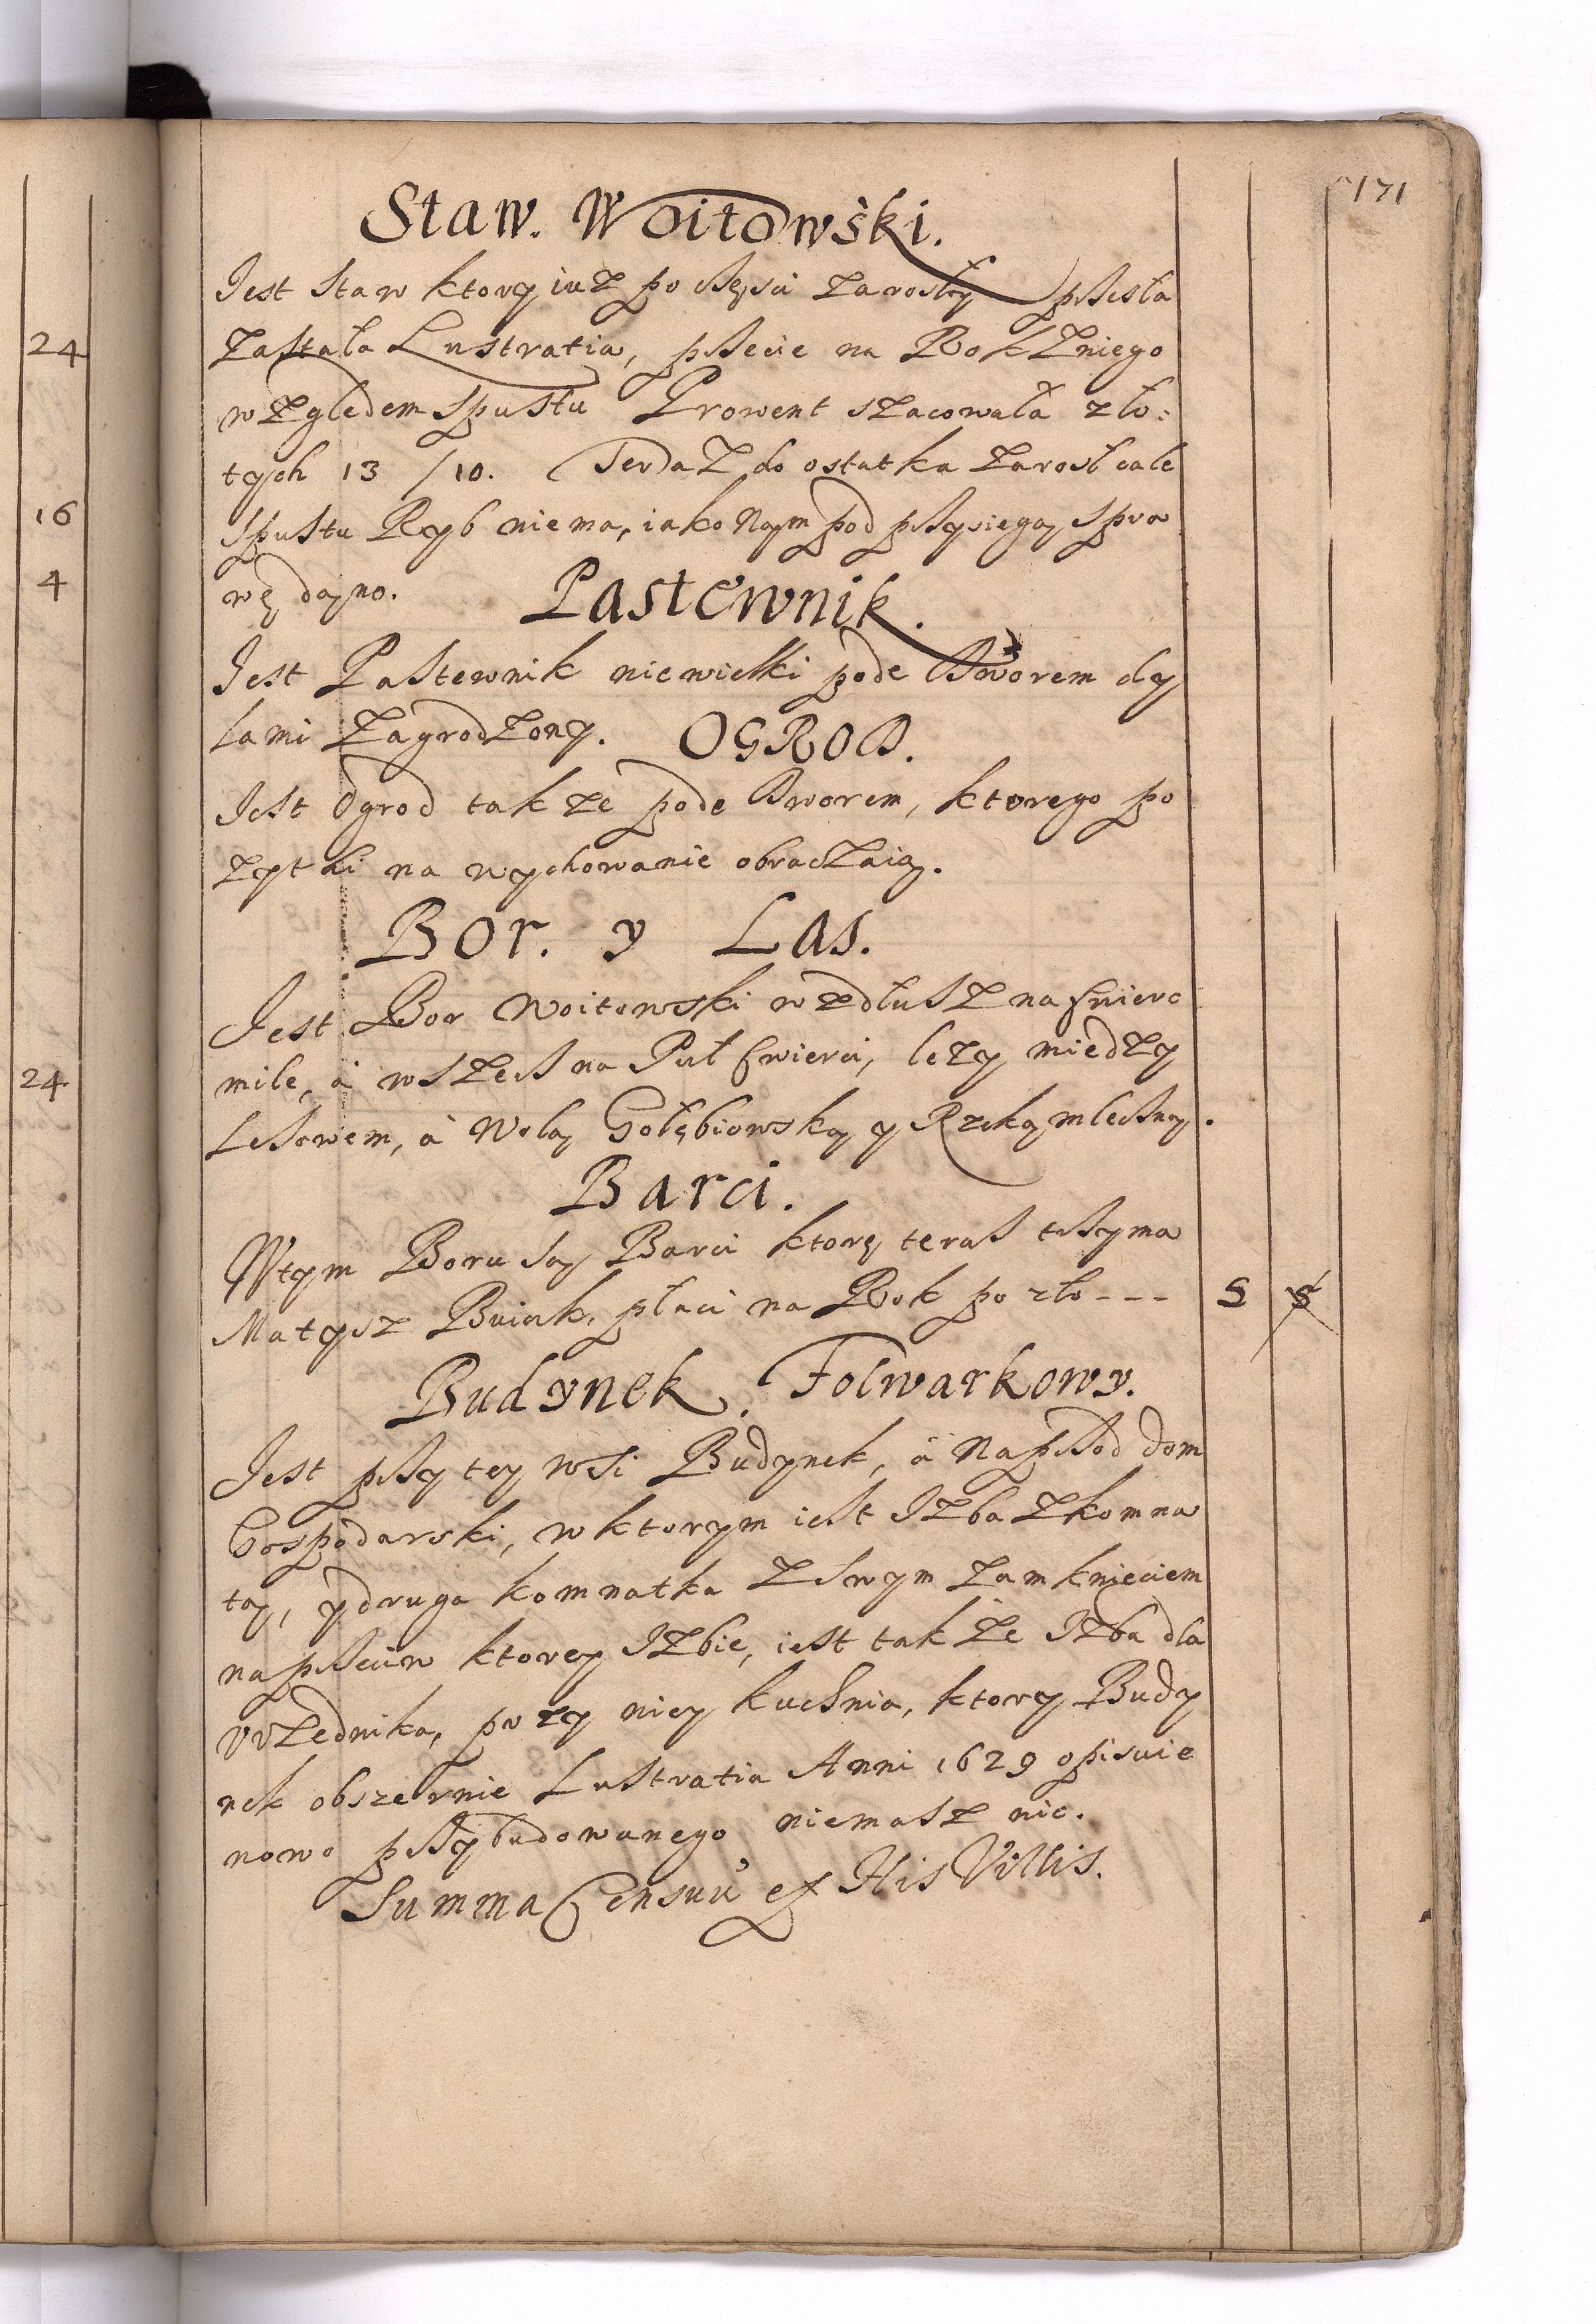 171
Staw. Woitowski.
Jest Staw ktory iuz po częsci zarosły przesła
24
zastała Lustratia, przecie na Rok z niego
względem spustu Prowent szacowała zło:
tych 13 /10. Teraz do ostatka zarosł cale
16
spustu Ryb nie ma, iako Nam pod przysięgą spra
4
wę dano. Pastewnik.
Jest Pastewnik niewielki pode Dworem dy
lami zagrodzony. OGROD.
Jest Ogrod takze pode Dworem, ktorego po
zytki na wychowanie obraczaią.
Bor. y Las.
Jest Bor Woitowski wzdłusz na cwierc
24
mile, à wszesz na Puł cwierci, lezy miedzy
Lesowem, à Wolą Gołębiowską y Rzeką mleczną.
Barci.
W tym Boru są Barci ktorę teras trzyma
Matysz Buiak, płaci na Rok po zło--- 5 5
Budynek. Folwarkowy.
Jest przy tey wsi Budynek, à Naprzod dom
Gospodarski, w ktorym iest Izba z komna
tą, y druga komnatka z swym zamknieciem
naprzeciw ktorey Izbie, iest takze Izba dla
Vrzednika, przy niey kuchnia, ktory Budy
nek obszernie Lustratia Anni 1629 opisuie
nowo przybudowanego niemasz nic.
Summa Censuũ ex His Villis.